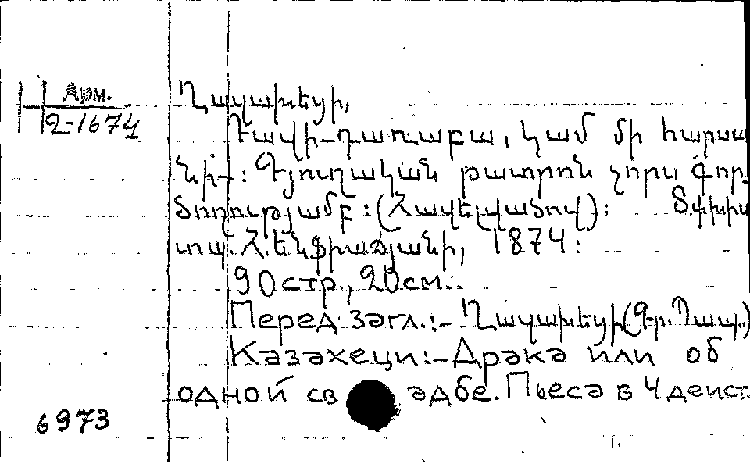 Арм.
2-1674
Ղազախեցի,
կամ մի հարսա
նիք: Գյուղական թատրոն չորս գոր-
ծողությամբ: (Հավելվածով): Տփխիս
տպ. Հ. Ենֆիաճյանի, 1874:
90 стр., 20 см.
Перед загл.:- Ղազախեցի (Գր. Պապ.)
Казахеци:- Драка или об
одной св адбе. Пьеса в 4 дейст
6973